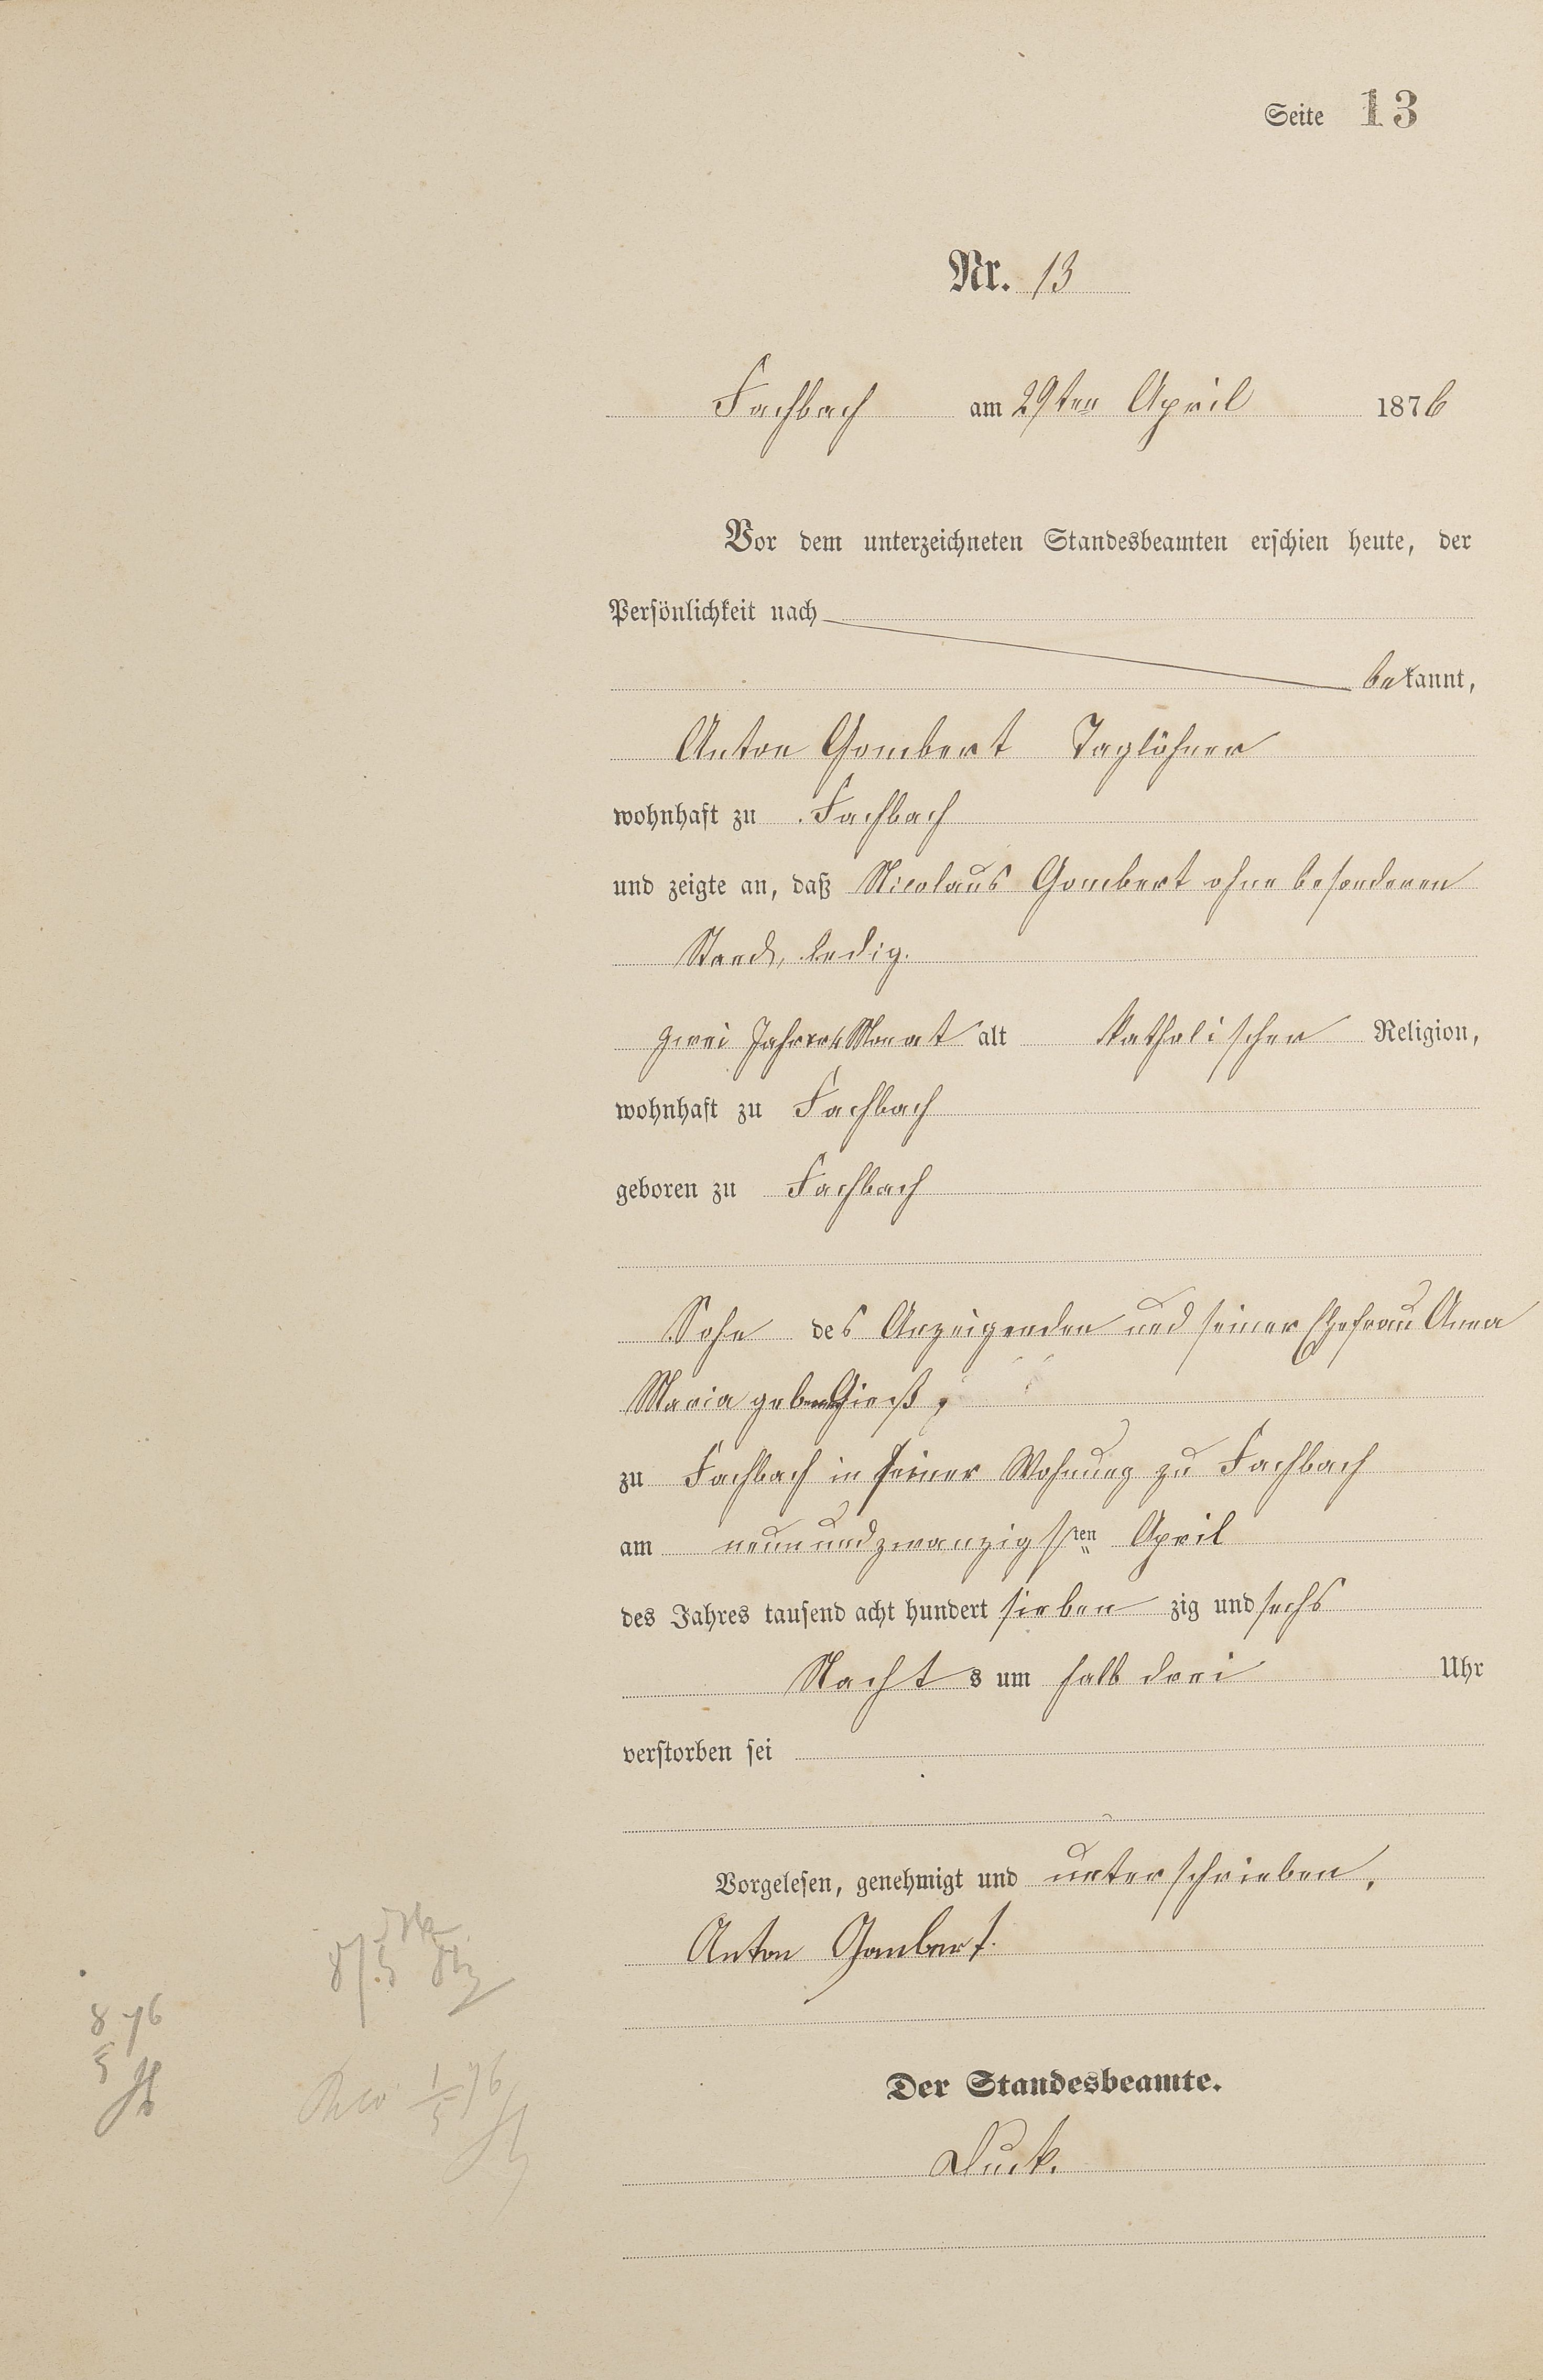 Seite 13
Nr. 13
Fachbach am 29ten April 1876
Vor dem unterzeichneten Standesbeamten erschien heute, der
Persönlichkeit nach
bekannt,
Anton Gombert Taglöhner
wohnhaft zu Fachbach
und zeigte an, daß Nicolaus Gombert ohne besonderen
Stand, ledig.
zwei Jahre Monat alt katholischer Religion,
wohnhaft zu Fachbach
geboren zu Fachbach
Sohn des Anzeigenden und seiner Ehefrau Anna
Maria
zu Fachbach in seiner Wohnung zu Fachbach
am neunundzwanzigsten April
des Jahres tausend acht hundert sieben zig und sechs
Nacht s um halb drei Uhr
verstorben sei
Vorgelesen, genehmigt und unterschrieben.
Anton Gombert.
8 76
5
1/5 76
Der Standesbeamte.